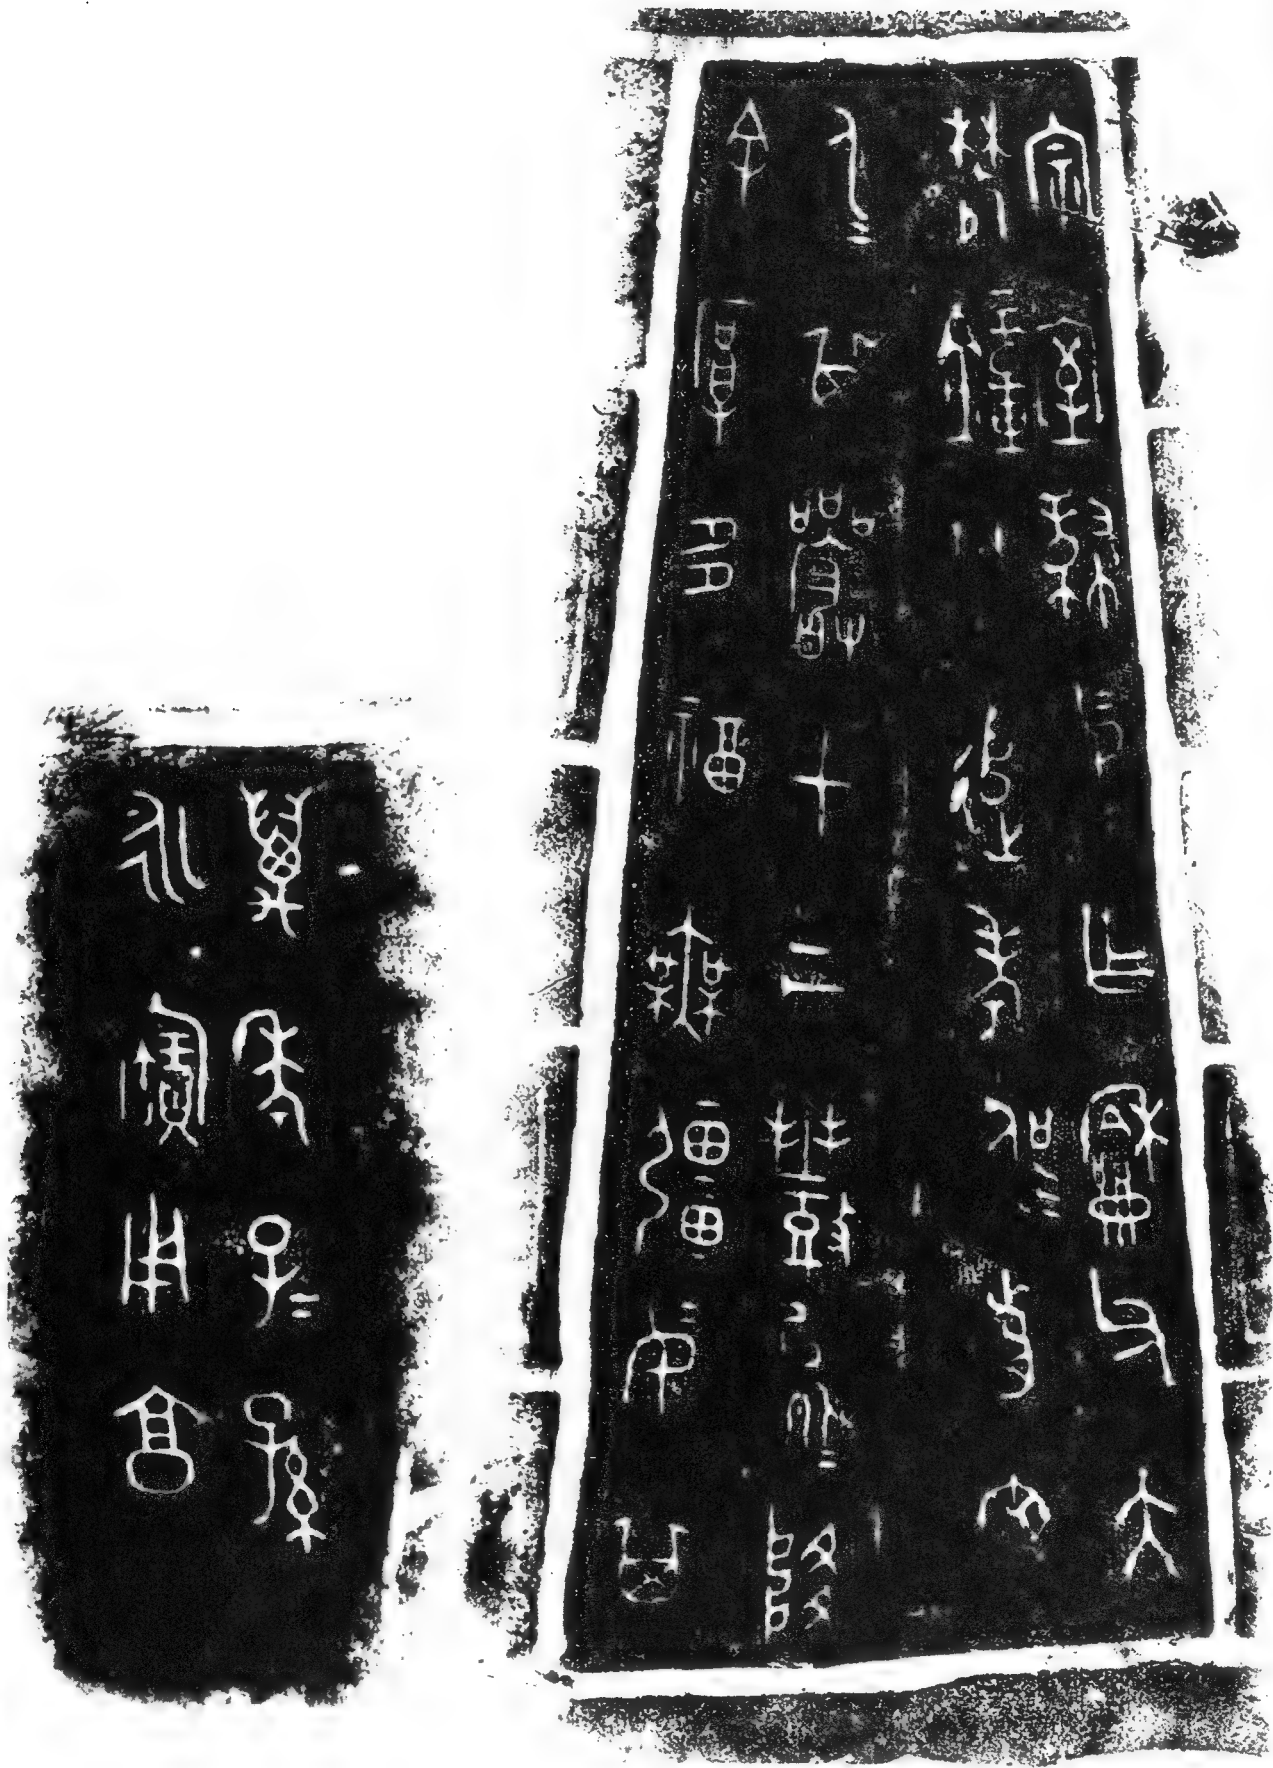 宗室䋣妄乍龢父大
林鐘用追孝侃前文
人＝其嚴才上＝降
余厚多福無疆妄其
萬年子＝孫
永寶用亯